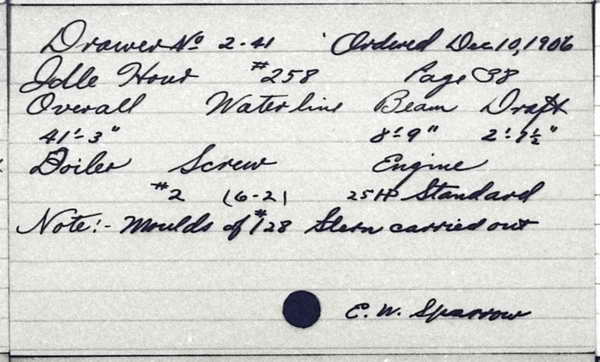 Drawer No 2-41 Ordered Dec 10, 1906
Idle Hour #258 Page 38
Overall Waterline Beam Draft
41'-3" 8'-9" 2'-7½"
Boiler Screw Engine
#2 (6-2) 25 HP Standard
Note:- Moulds of #128 Stern carried out
E. W. Sparrow